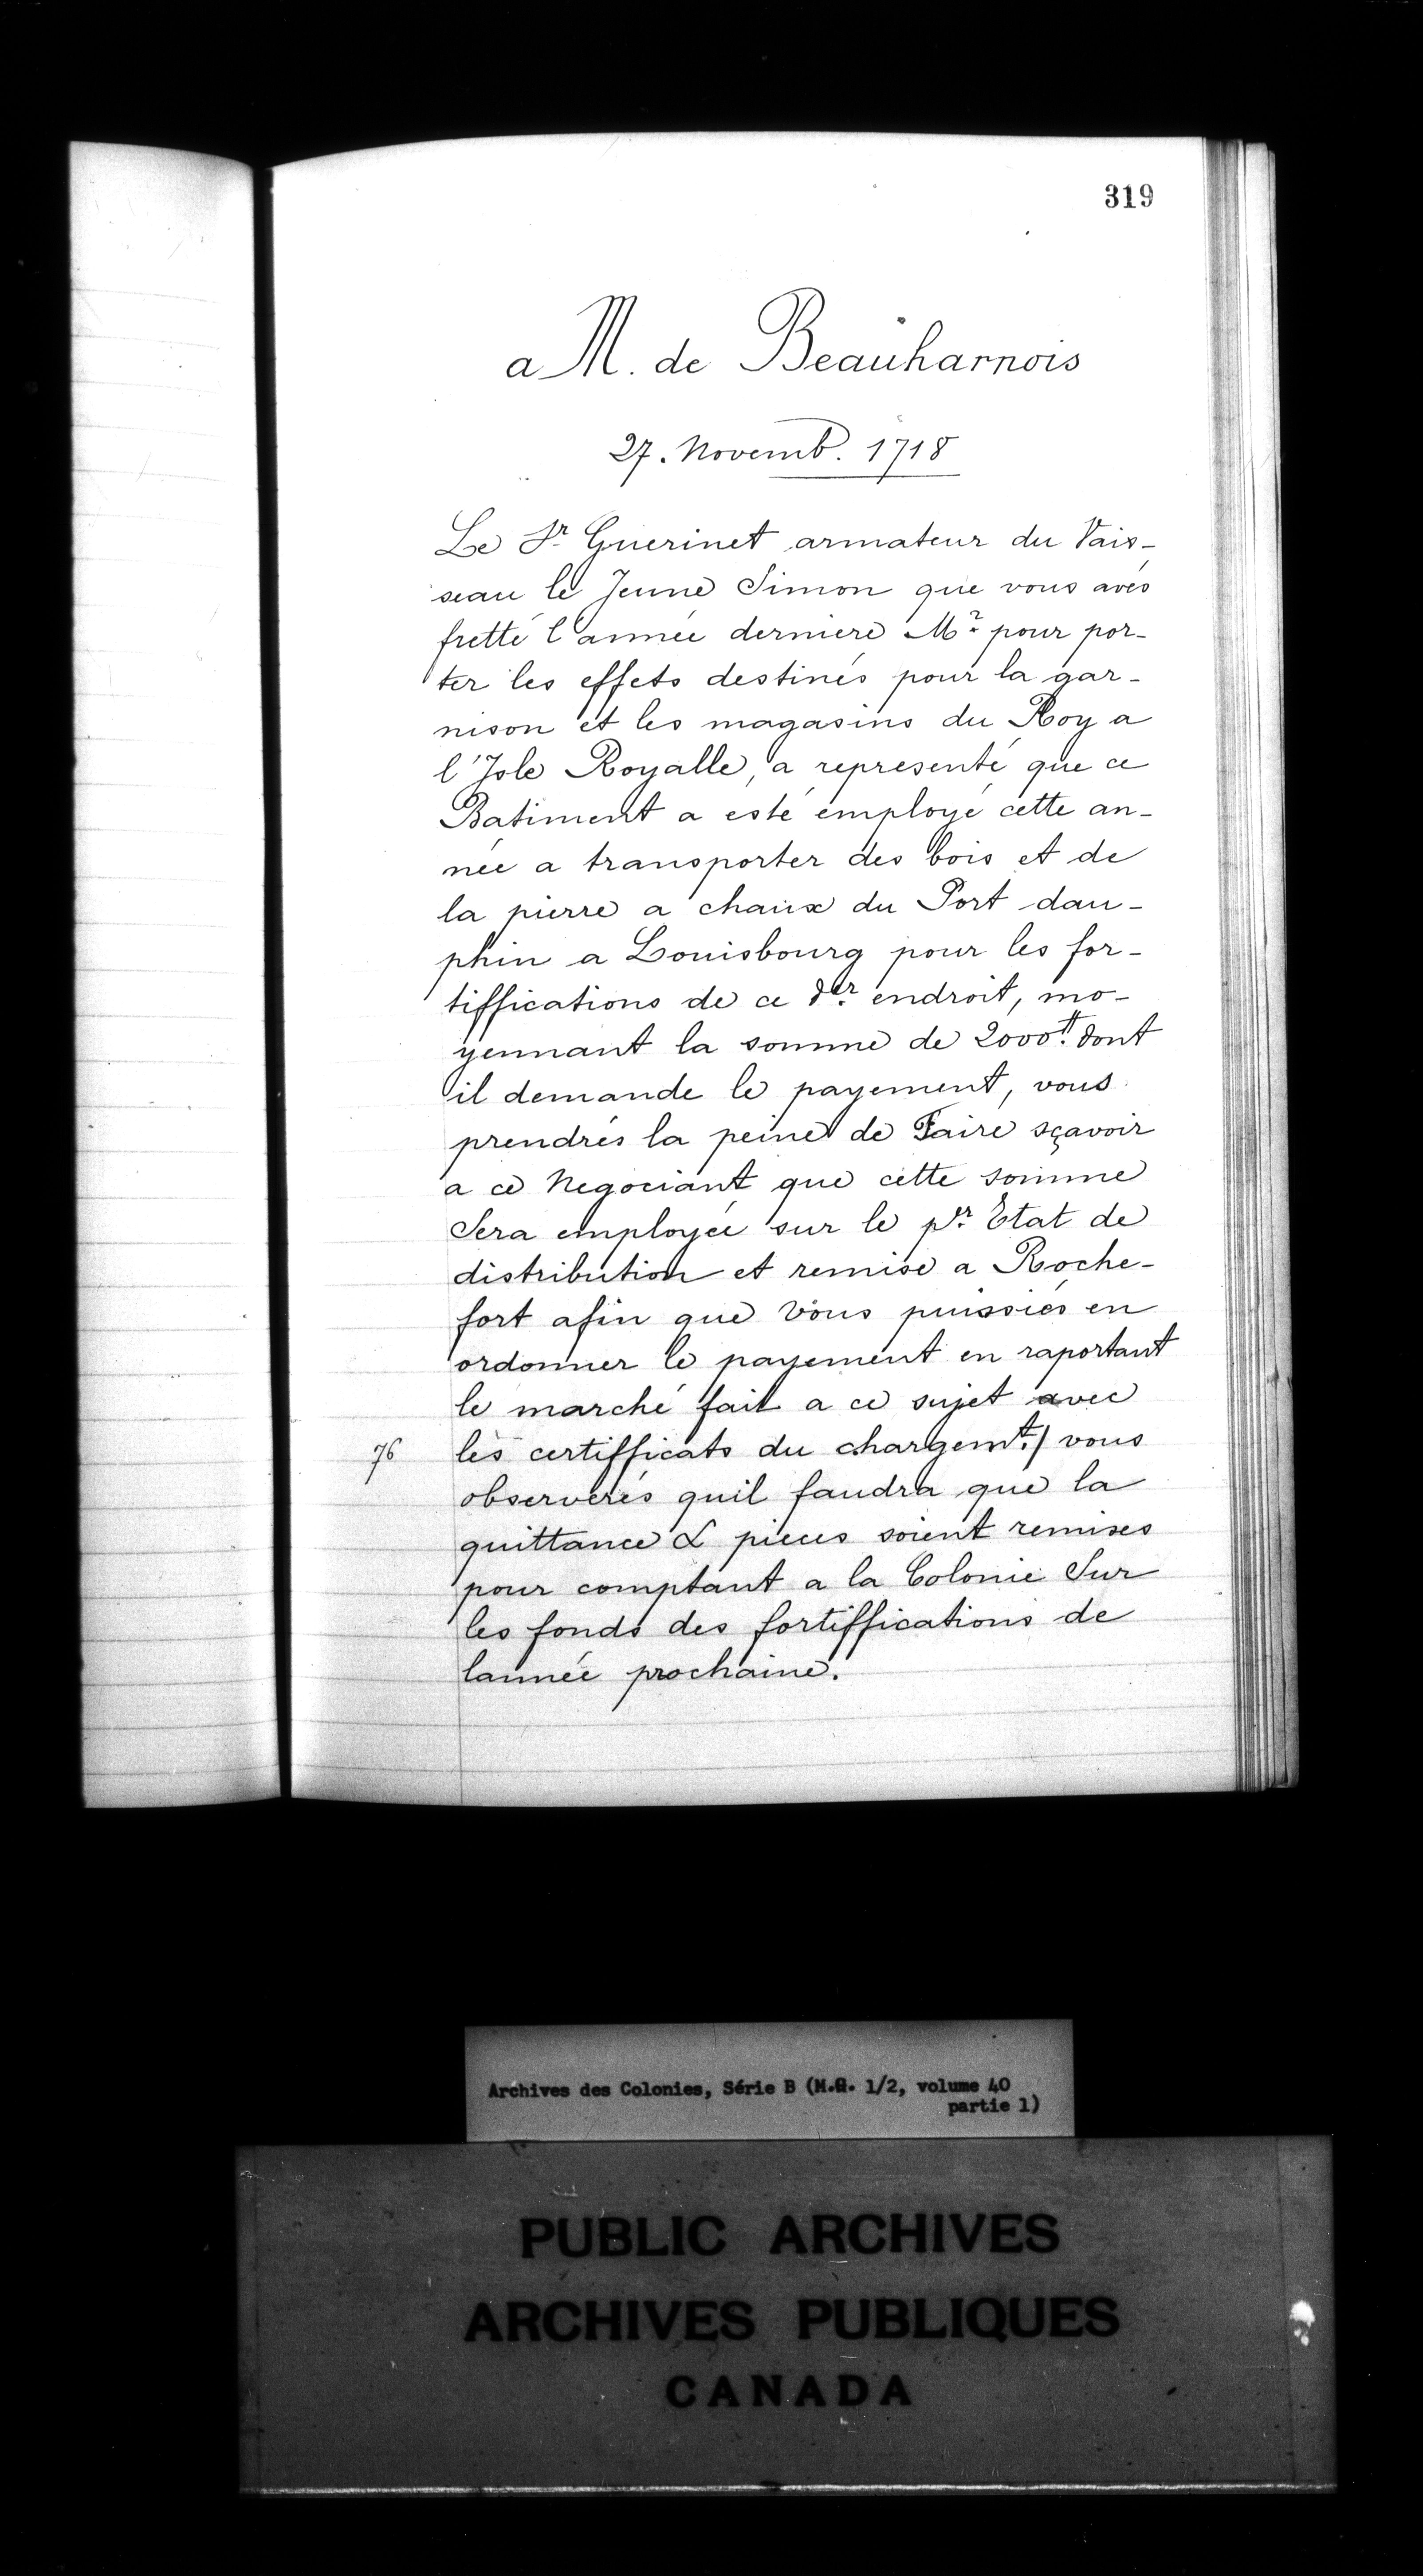 319
a M. de Beauharnois
27. Novemb. 1718
Le Sr. Guerinet armateur du Vais-
seau le Jeune Simon que vous avés
fretté l'année derniere Mr. pour por-
ter les effets destinés pour la gar-
nison et les magasins du Roy a
l'Isle Royalle, a representé que ce
Batiment a esté employé cette an-
née a transporter des bois et de
la pierre a chaux du Port dau-
phin a Louisbourg pour les for-
tiffications de ce der. endroit, mo-
yennant la somme de 2000tt. dont
il demande le payement, vous
prendrés la peine de Faire sçavoir
a ce Negociant que cette somme
Sera employée sur le pr. Etat de
distribution et remise a Roche-
fort afin que Vous puissiés en
ordonner le payement en raportant
le marché fait a ce sujet avec
76 les certifficats du chargemt./ vous
observerés quil faudra que la
quittance & pieces soient remises
pour comptant a la Colonie Sur
les fonds des fortiffications de
lannée prochaine.
Archives des Colonies, Série B (M.G. 1/2, volume 40
partie 1)
PUBLIC ARCHIVES
ARCHIVES PUBLIQUES
CANADA